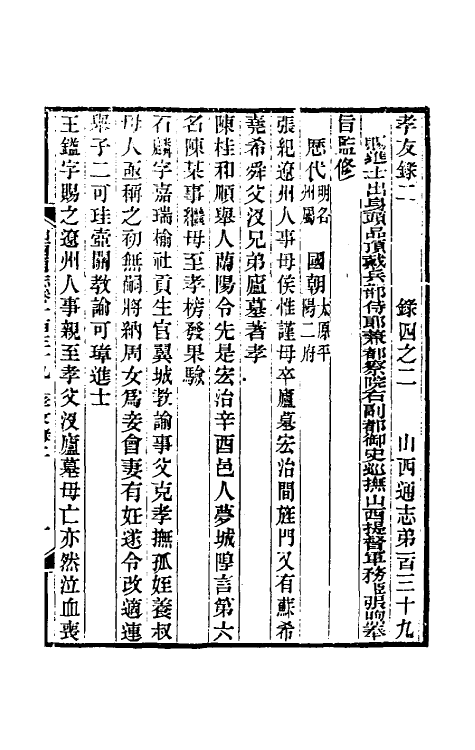 孝友錄二　錄四之二　山西通志弟百三十九
賜進士出身頭品頂戴兵部侍郎兼都察院右副都御史巡撫山西提督軍務臣張煦奉
旨監修
歷代明名州屬　國朝太原平陽二府
張紀遼州人事母侯惟謹母卒廬墓宏治間旌門又有蘇希
堯希舜父沒兄弟廬墓著孝
陳桂和順舉人蘭陽令先是宏治辛酉邑人夢城隍言第六
名陳某事繼母至孝榜發果驗
石麟字嘉瑞榆社貢生官翼城教諭事父克孝撫孤姪養叔
母人亟稱之初無嗣將納周女為妾會妻有妊遂令改適連
舉子二可珪壺關教諭可璋進士
王鑑字賜之遼州人事親至孝父沒廬墓母亡亦然泣血喪